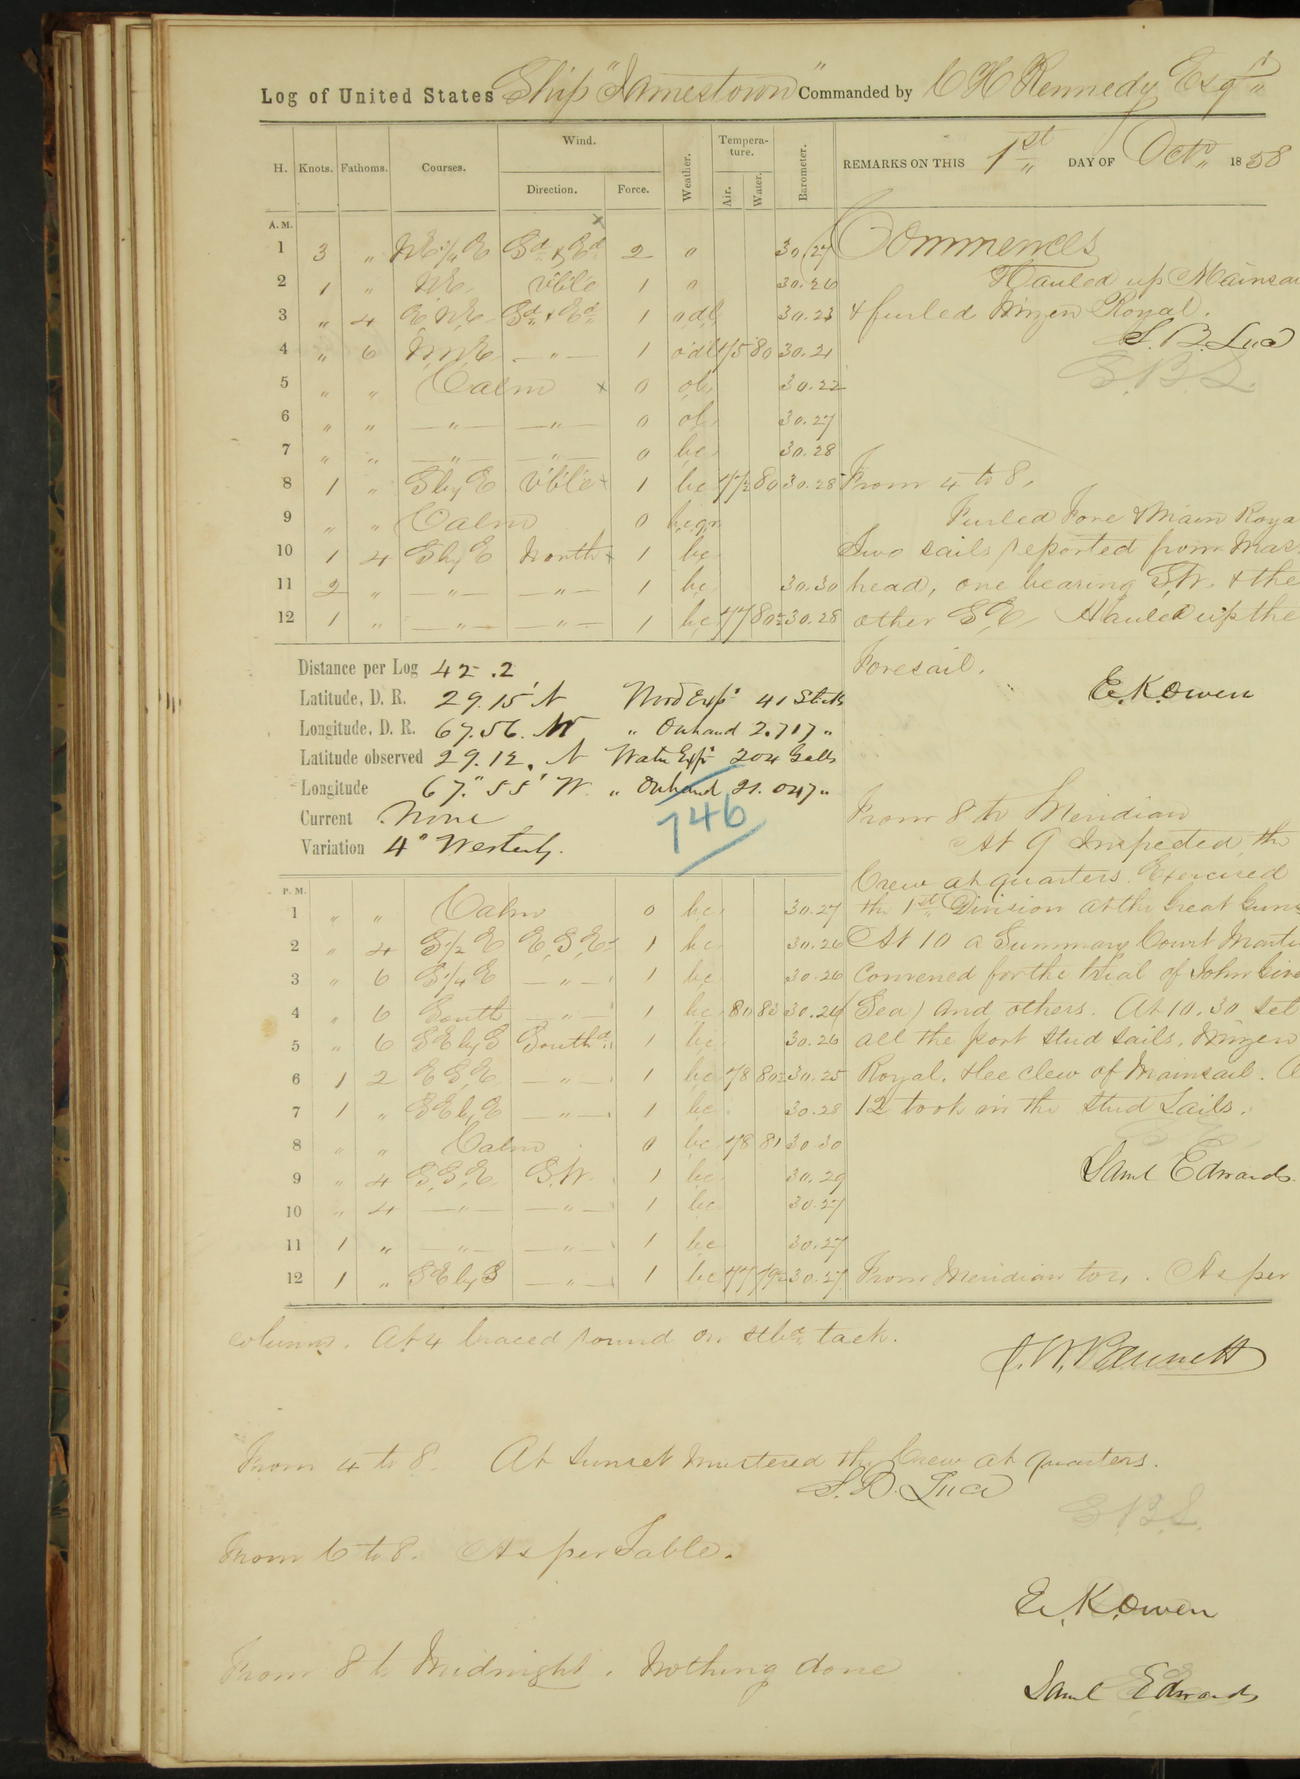 Log of United States Ship "Jamestown" Commanded by C H Kennedy Esqr
H. Knots. Fathoms. Courses. Wind. Direction. Force. Weather. Tempera-ture. Air. Water. Barometer. REMARKS ON THIS 1st DAY OF Octr 1858
A. M.
1 3 " NE 1/4 E Sd & Ed 2 o 30.27 Commences
2 1 " NE V'b'le 1 o 30.26 Hauled up Mainsai
3 " 4 E.N.E Sd & Ed 1 o.d.l 30.23 & furled Mizen Royal.
4 " 6 N.N.E — " — 1 o.d.l 75 80 30.21 S. B. Luce
5 " " Calm 0 o.l. 30.22 S.B.L.
6 " " — " — — " — 0 o.l. 30.27
7 " " — " — — " — 0 b.c. 30.28
8 1 " S by E V'b'le 1 b.c 77½ 80 30.28 From 4 to 8.
9 " " Calm 0 b.c.q.r Furled Fore & Main Roya
10 1 4 S by E North 1 b.c. Two sails reported from Mas
11 2 " — " — — " — 1 b.c. 30.30 head, one bearing S.W. & the
12 1 " — " — — " — 1 b.c 77 80½ 30.28 other S.E. Hauled up the
Foresail.
E. K. Owen
Distance per Log 42.2
Latitude, D. R. 29.15' N Wood Expd 41 Sticks
Longitude, D. R. 67.56. W " Onhand 2.717 "
Latitude observed 29.12. N Water Expd 204 Galls
Longitude 67.° 55' W. " Onhand 21.047 "
Current None
Variation 4° Westerly.
746
From 8 to Meridian
At 9 Inspected the
Crew at quarters. Exercised
P. M.
1 " " Calm 0 b.c. 30.27 the 1st Division at the Great Guns
2 " 4 S ½ E E.S.E 1 b.c. 30.26 At 10 a Summary Court Marti
3 " 6 S ¼ E — " — 1 b.c. 30.26 convened for the trial of John
4 " 6 South — " — 1 b.c. 80 83 30.26 Sea) and others. At 10.30 set
5 " 6 SE by S Southd 1 b.c. 30.26 all the port stud sails, Mizen
6 1 2 E.S.E — " — 1 b.c. 78 80½ 30.25 Royal, & lee clew of Mainsail. A
7 1 " SE by E — " — 1 b.c. 30.28 12 took in the stud Sails.
8 " " Calm 0 b.c. 78 81 30 30
9 " 4 S.S.E. S.W. 1 b.c. 30.29 Saml Edwards
10 " 4 — " — — " — 1 b.c. 30.27
11 1 " — " — — " — 1 b.c 30.27
12 1 " SE by S — " — 1 b.c 77 79½ 30.27 From Meridian to 4. As per
columns. At 4 braced round on stbd tack.
J. W. Bennett
From 4 to 8. At Sunset mustered the Crew at quarters.
S. B. Luce
S.B.L.
From 6 to 8. As per Table.
E. K. Owen
From 8 to Midnight. Nothing done
Saml Edwards